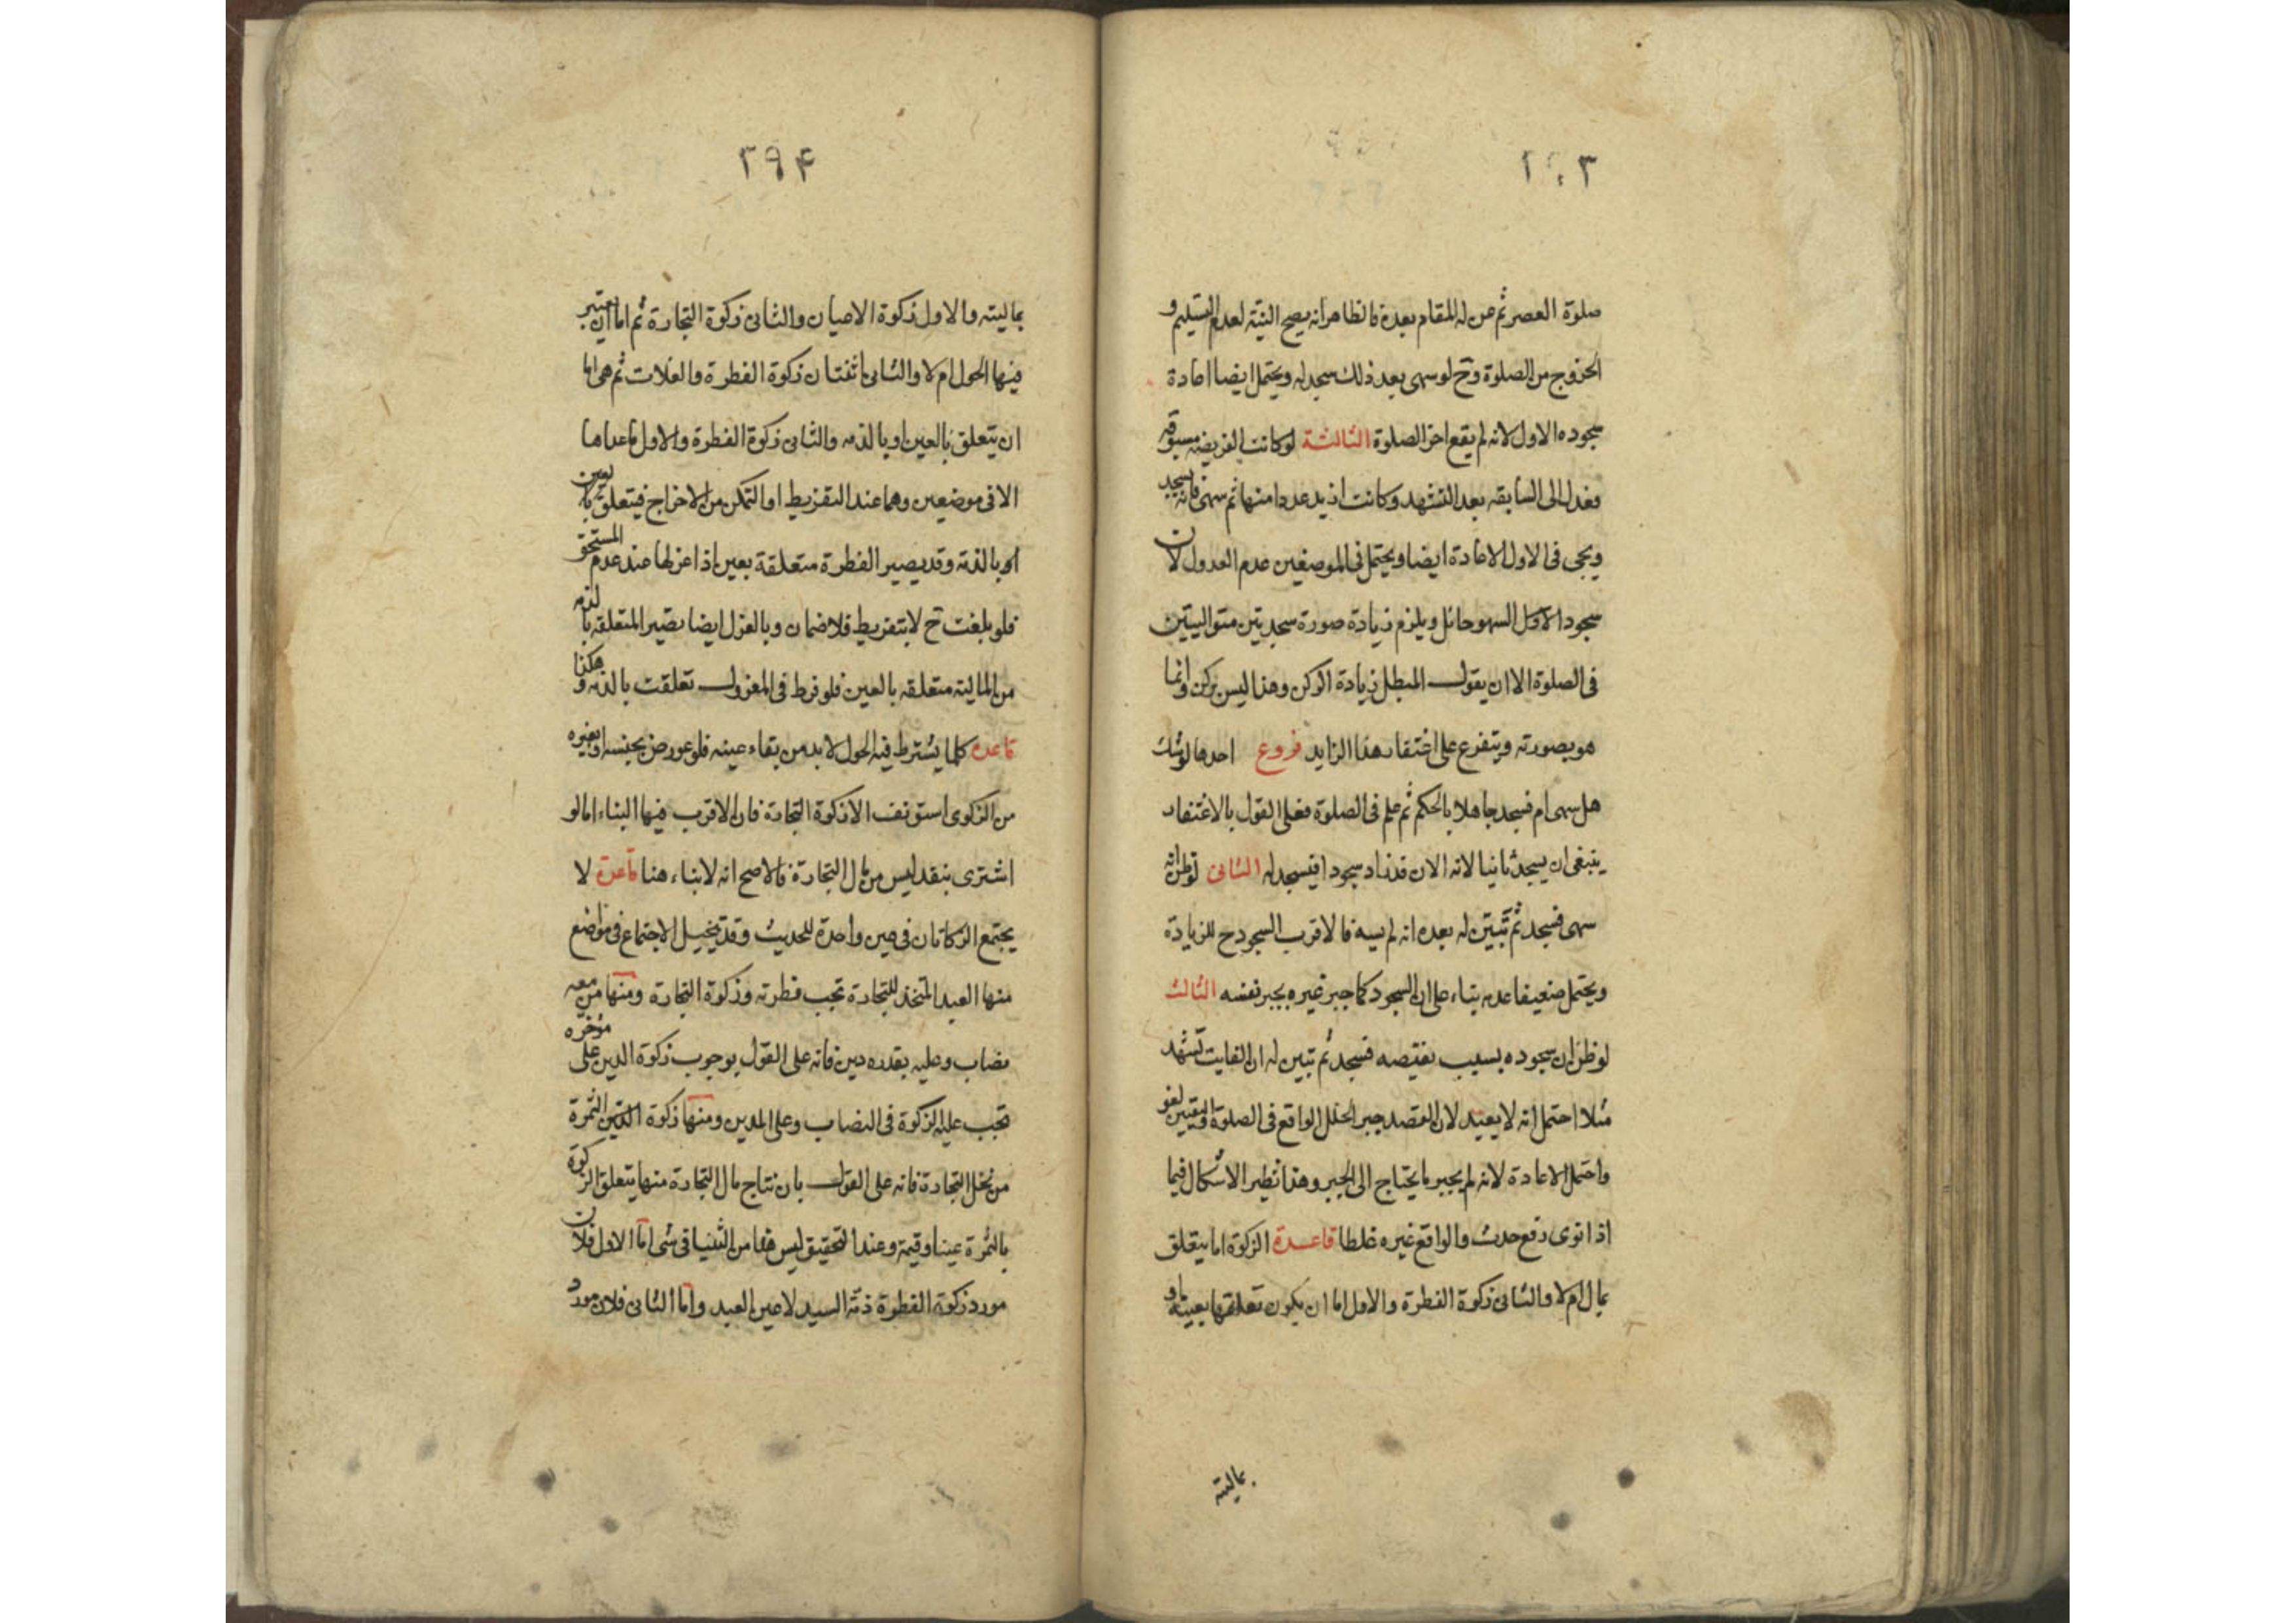 صلوة العصر ثم عن له المقام بعده فالظاهر انه يصح النية لعدم التسليم و
الخروج من الصلوة وح لو سهى بعد ذلك سجد له ويحتمل ايضا اعادة
سجوده الاول لانه لم يقع اخر الصلوة الثالثة لو كانت الفريضه مسبوقه
فعدل الى السابقه بعد التشهد وكانت ازيد عددا منها ثم سهى فانه يسجد
ويجى فى الاول الاعادة ايضا ويحتمل فى الموضعين عدم العدول لان
سجود الاول السهو حائل ويلزم زيادة صورة سجدتين متواليتين
فى الصلوة الا ان يقول المبطل زيادة الركن وهذا ليس بركن وانما
هو بصورته ويتفرع على اغتفار هذا الزايد فروع احدها لو شك
هل سهى ام فسجد جاهلا بالحكم ثم علم فى الصلوة فعلى القول بالاغتفار
ينبغى ان يسجد ثانيا لانه الان قد زاد سجودا فيسجد له الثانى لو ظن انه
سهى فسجد ثم تبين له بعده انه لم يسه فالاقرب السجود ح للزيادة
ويحتمل ضعيفا عدمه بناء على ان السجود كما جبر غيره يجبر نفسه الثالث
لو ظن ان سجوده بسبب نقيصه فسجد ثم تبين له ان الفايت تشهد
مثلا احتمل انه لا يعيد لان القصد جبر الخلل الواقع فى الصلوة والتعيين لغو
واحتمل الاعادة لانه لم يجبر ما يحتاج الى الجبر وهذا نظير الاشكال فيما
اذا نوى رفع حدث والواقع غيره غلطا قاعدة الزكوة اما يتعلق
بمال ام لا والثانى زكوة الفطرة والاول اما ان يكون تعلقها بعينه او
بماليته
٢٩۴
بماليته والاول زكوة الاعيان والثانى زكوة التجارة ثم اما ان يعتبر
فيها الحول ام لا والثانى اثنتان زكوة الفطرة والغلات ثم هى اما
ان يتعلق بالعين او بالذمه والثانى زكوة الفطرة والاول ما عداها
الا فى موضعين وهما عند التفريط او التمكن من الاخراج فيتعلق بالعين
او بالذمة وقد يصير الفطرة متعلقة بعين اذا عزلها عند عدم المستحق
فلو بلغت ح لا بتفريط فلا ضمان وبالعزل ايضا يصير المتعلقه بالذمه
من الماليته متعلقه بالعين فلو فرط فى المعزول تعلقت بالذمه وهكذا
قاعدة كلما يشترط فيه الحول لا بد من بقاء عينه فلو عورض بجنسه او بغيره
من الزكوى استونف الا زكوة التجارة فان الاقرب فيها البناء اما لو
اشترى بنقد ليس من مال التجارة فالاصح انه لا بناء هنا قاعدة لا
يجتمع الزكاتان فى عين واحدة للحديث وقد يتخيل الاجتماع فى مواضع
منها العبد المتخذ للتجارة تجب فطرته وزكوة التجارة ومنها من معه
نصاب وعليه بقدره دين فانه على القول بوجوب زكوة الدين على مؤخره
تجب عليه الزكوة فى النصاب وعلى المدين ومنها زكوة الثمرة
من نخل التجارة فانه على القول بان نتاج مال التجارة منها يتعلق الزكوة
بالثمرة عينا وقيمة وعند التحقيق ليس هذا من الثنيا فى شى اما الاول فلان
مورد زكوة الفطرة ذمة السيد لا عين العبد واما الثانى فلان مورد